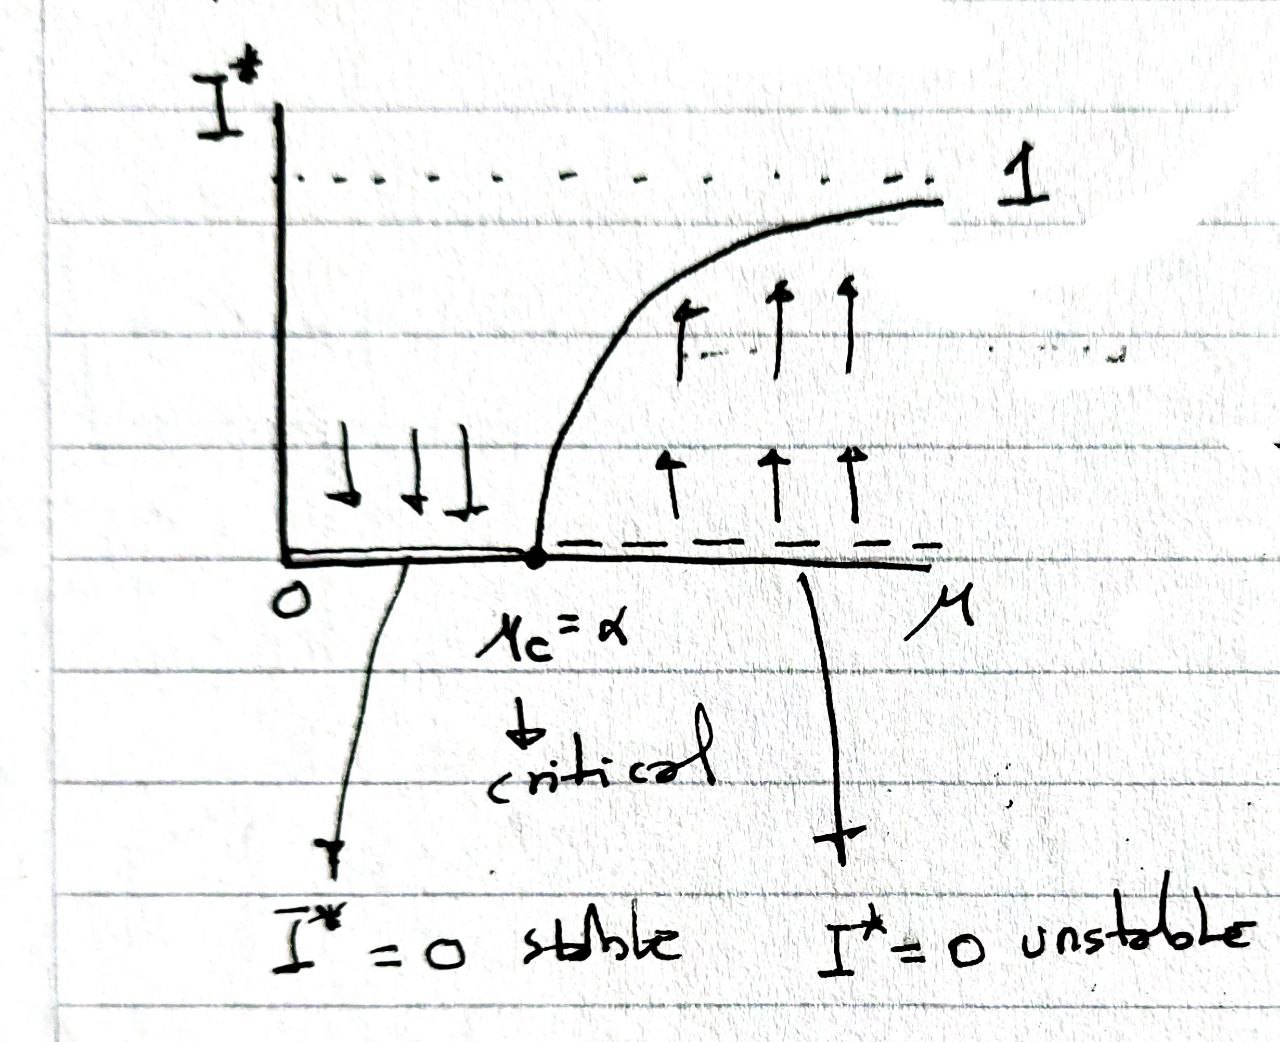 I*
1
0
μc = α
μ
critical
I* = 0 stable
I* = 0 unstable